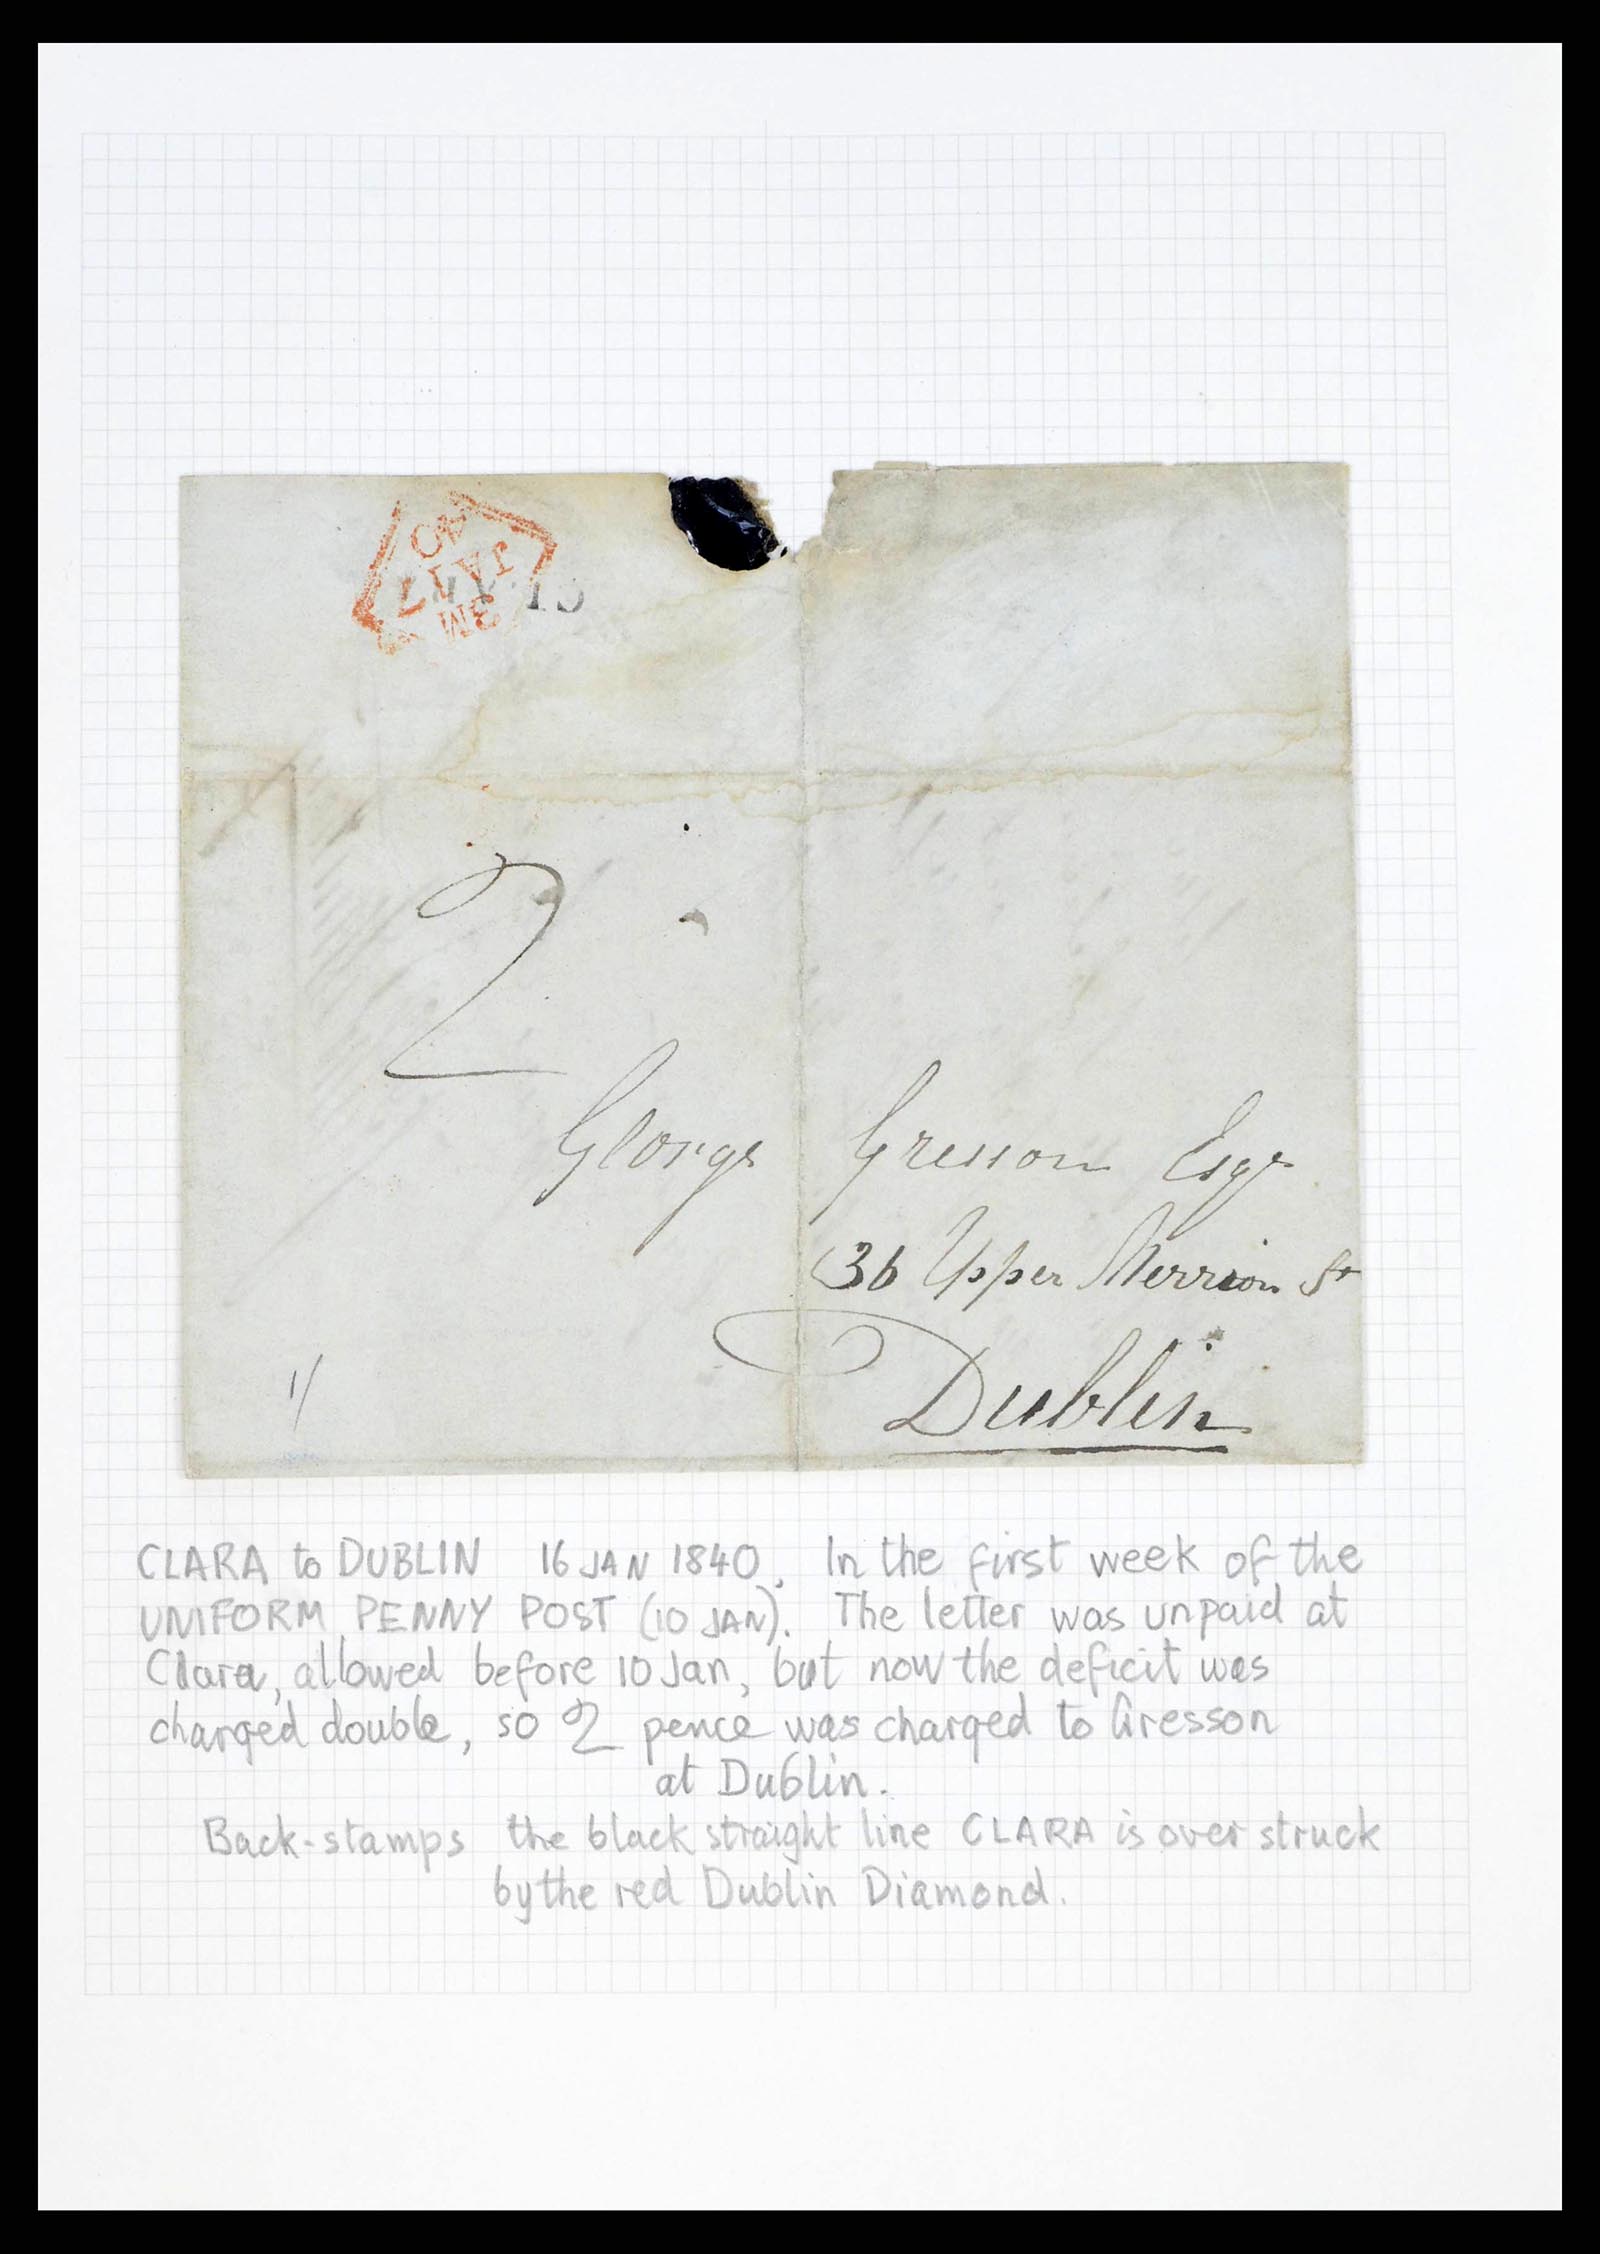 40
JA
17
3M
CLARA
2
George Gresson Esqr
36 Upper Merrion St
Dublin
1/
CLARA to DUBLIN 16 JAN 1840. In the first week of the
UNIFORM PENNY POST (10 JAN). The letter was unpaid at
Clara, allowed before 10 Jan, but now the deficit was
charged double, so 2 pence was charged to Gresson
at Dublin.
Back-stamps the black straight line CLARA is over struck
by the red Dublin Diamond.